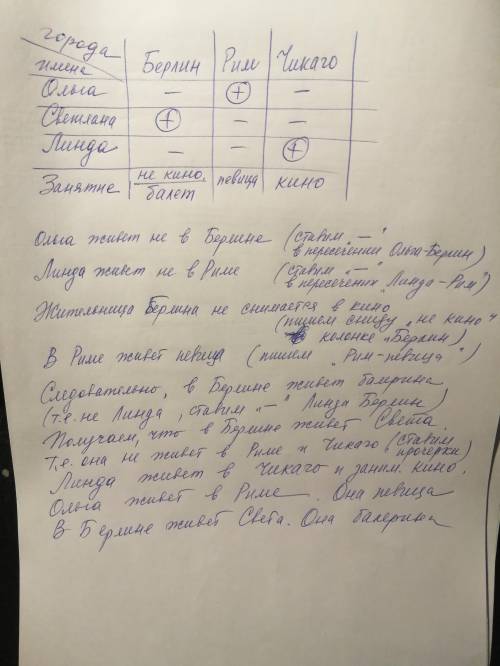 города
имена Берлин Рим Чикаго
Ольга — + —
Светлана + — —
Линда — — +
Занятие не кино, балет певица кино
Ольга живет не в Берлине (ставим „—"
в пересечении Ольга-Берлин)
Линда живет не в Риме (ставим „—"
в пересечениях „Линда-Рим")
Жительница Берлина не снимается в кино
(пишем снизу „не кино"
колонке „Берлин)
В Риме живет певица (пишем „Рим-певица")
Следовательно, в Берлине живет балерина
(т.е. не Линда, ставим „—" Линда Берлин)
Получаем, что в Берлине живет Света.
Т.е. она не живет в Риме и Чикаго (ставим
прочерки)
Линда живет в Чикаго и заним. кино.
Ольга живет в Риме. Она певица
В Берлине живет Света. Она балерина